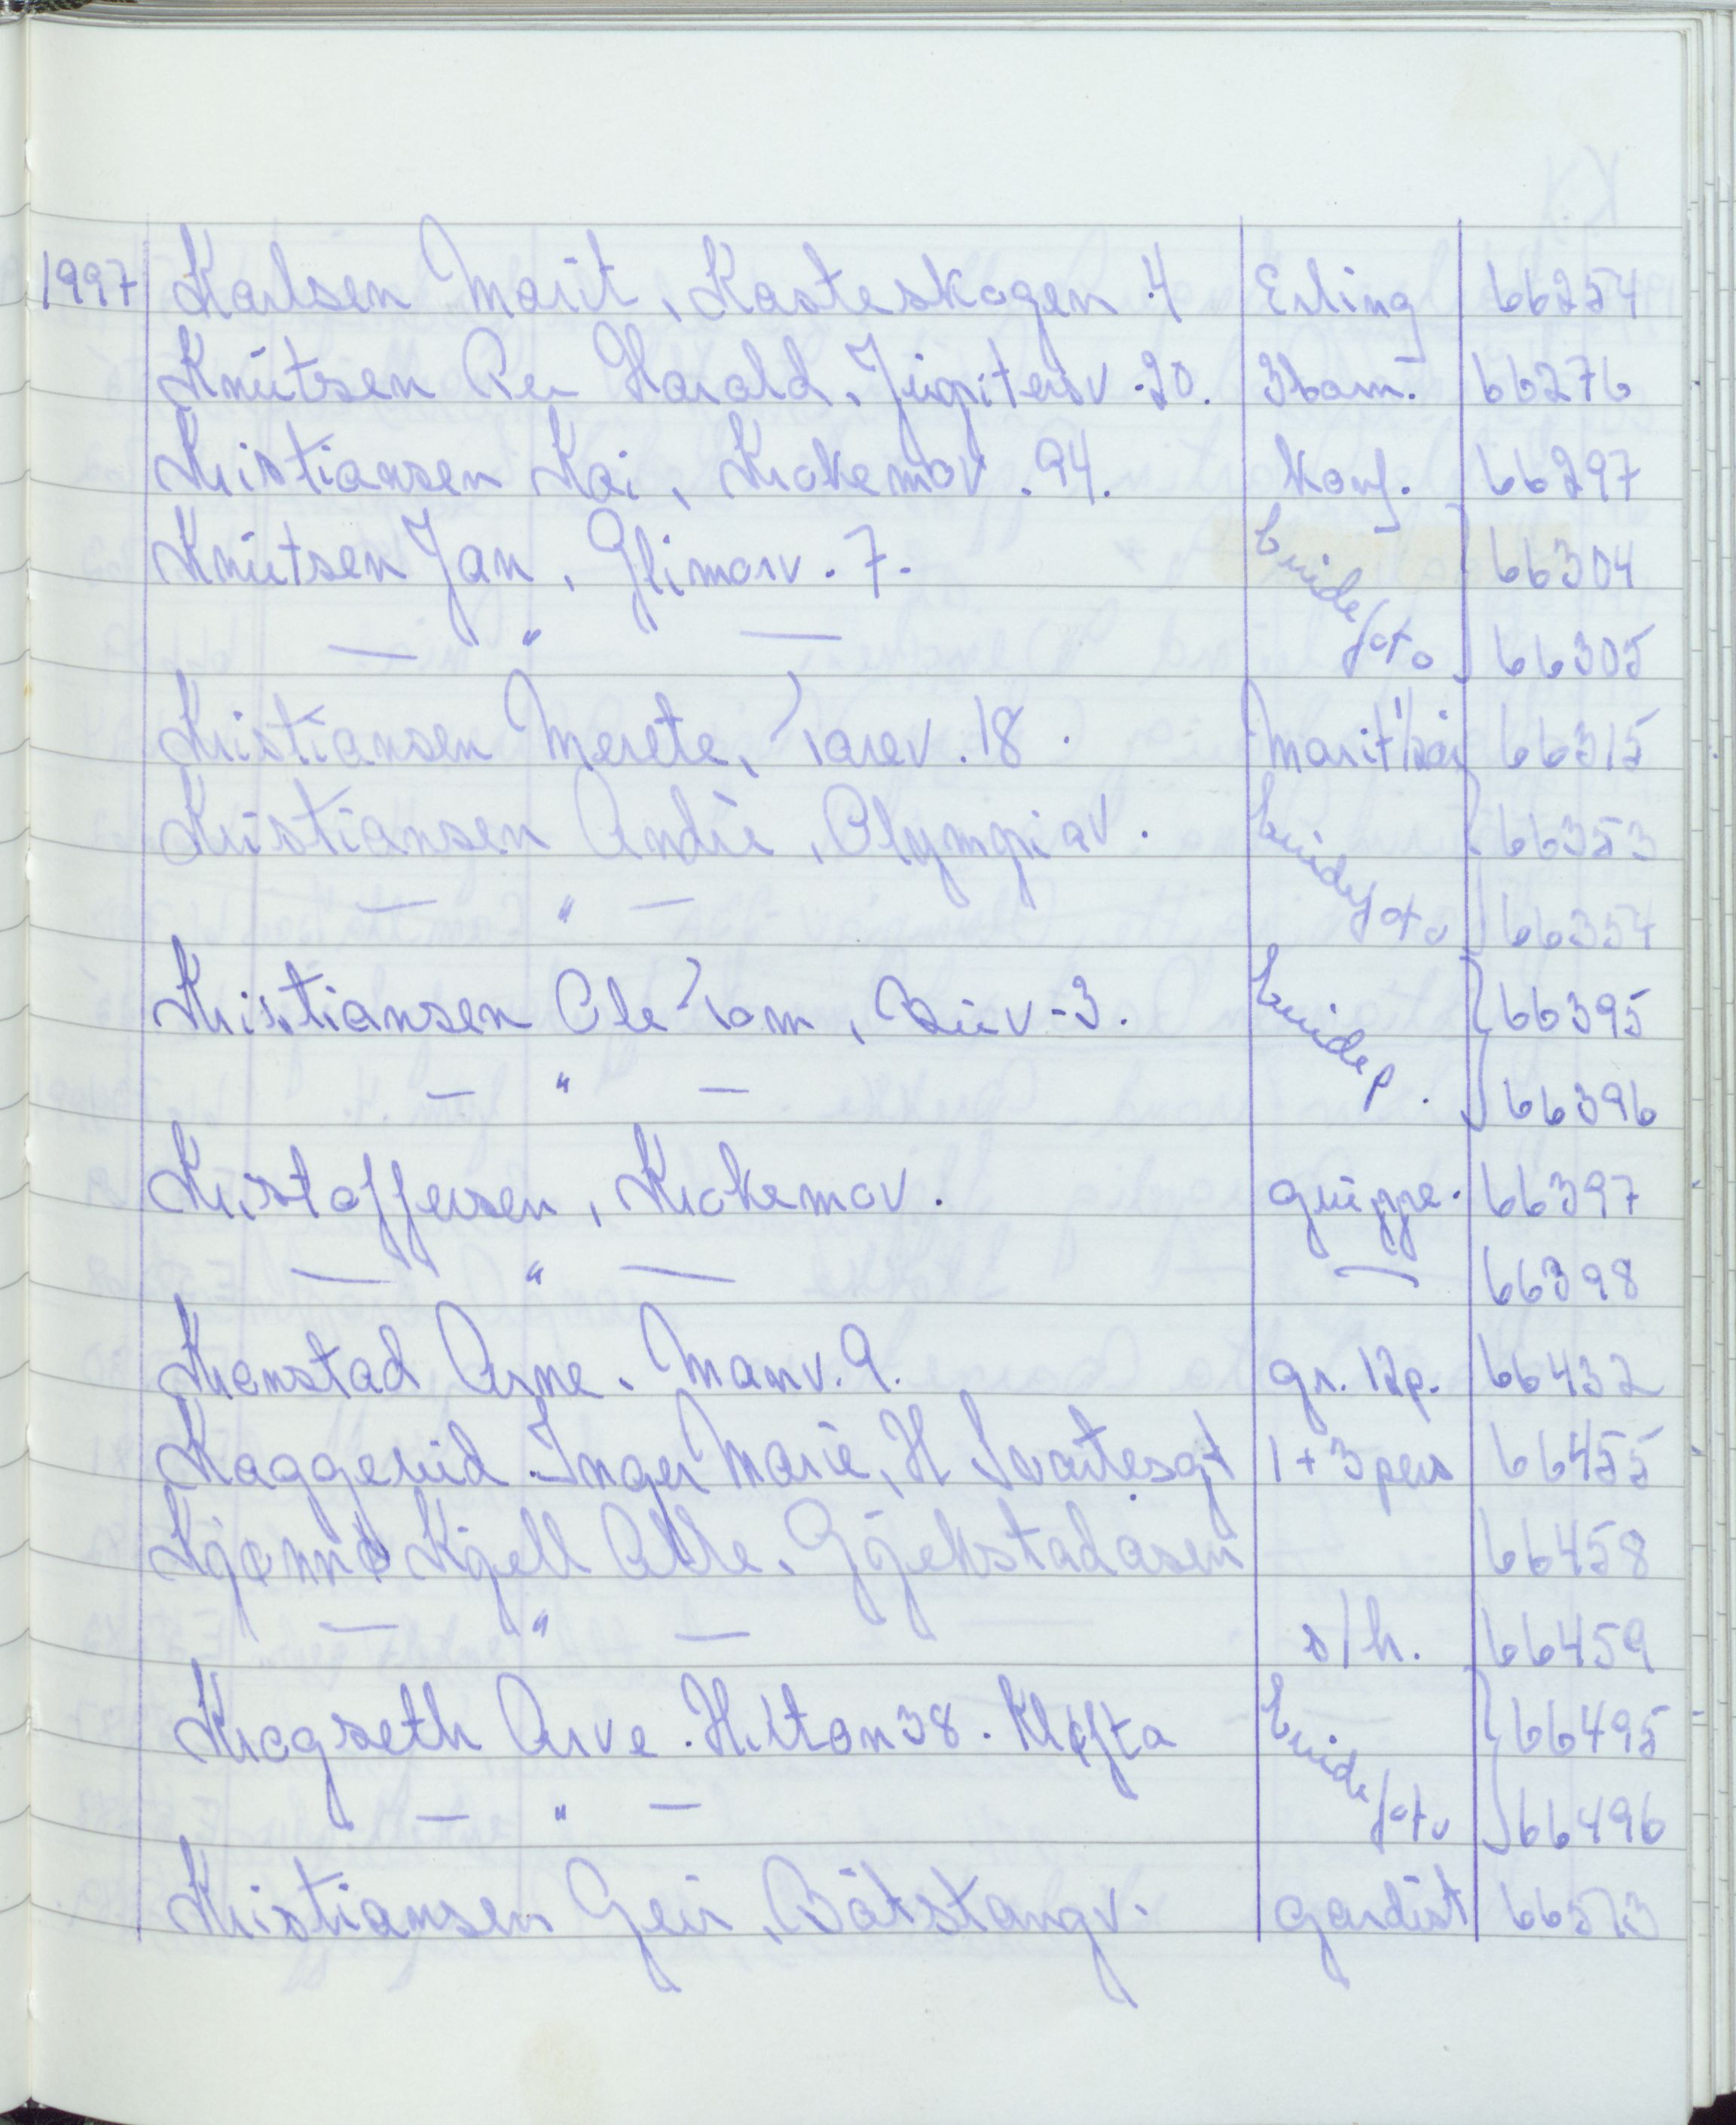 1997 Karlsen Marit, Kasteskogen 4 Erling 66254
Knutsen Per Harald, Jupiterv. 20. 3barn. 66276
Kristiansen Kai, Krokemov. 94. konf. 66297
Knutsen Jan, Glimorv. 7. brude 66304
— " — foto 66305
Kristiansen Merete, Torev. 18. Marit 66315
Kristiansen Andre, Olympiav. brude 66353
— " — foto 66354
Kristiansen Ole Tom, 3. brudep. 66395
— " — 66396
Kristoffersen, Krokemov. gruppe. 66397
— " — — 66398
Kronstad Arne. 9. gr. 12p. 66432
Kaggerud Inger Marie, H Svartesgt 1+3 pers 66455
Kjønnø Kjell Atle, Gjekstadåsen 66458
— " — s/h. 66459
Krogseth Arve. Hilton 38. Kløfta brude 66495
— " — foto 66496
Kristiansen Geir, Båtstangv. gardist 66573